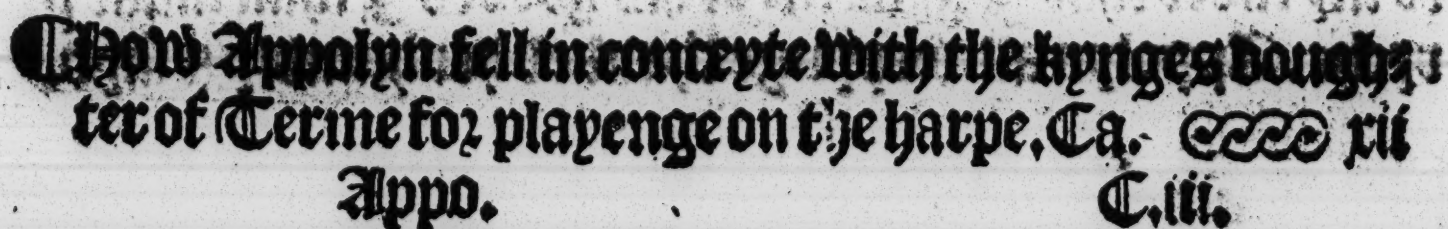 ¶How Appolyn fell in conceyte with the kynges dough=
ter of Terme for playenge on the harpe. Ca. xii
Appo. C.iii.